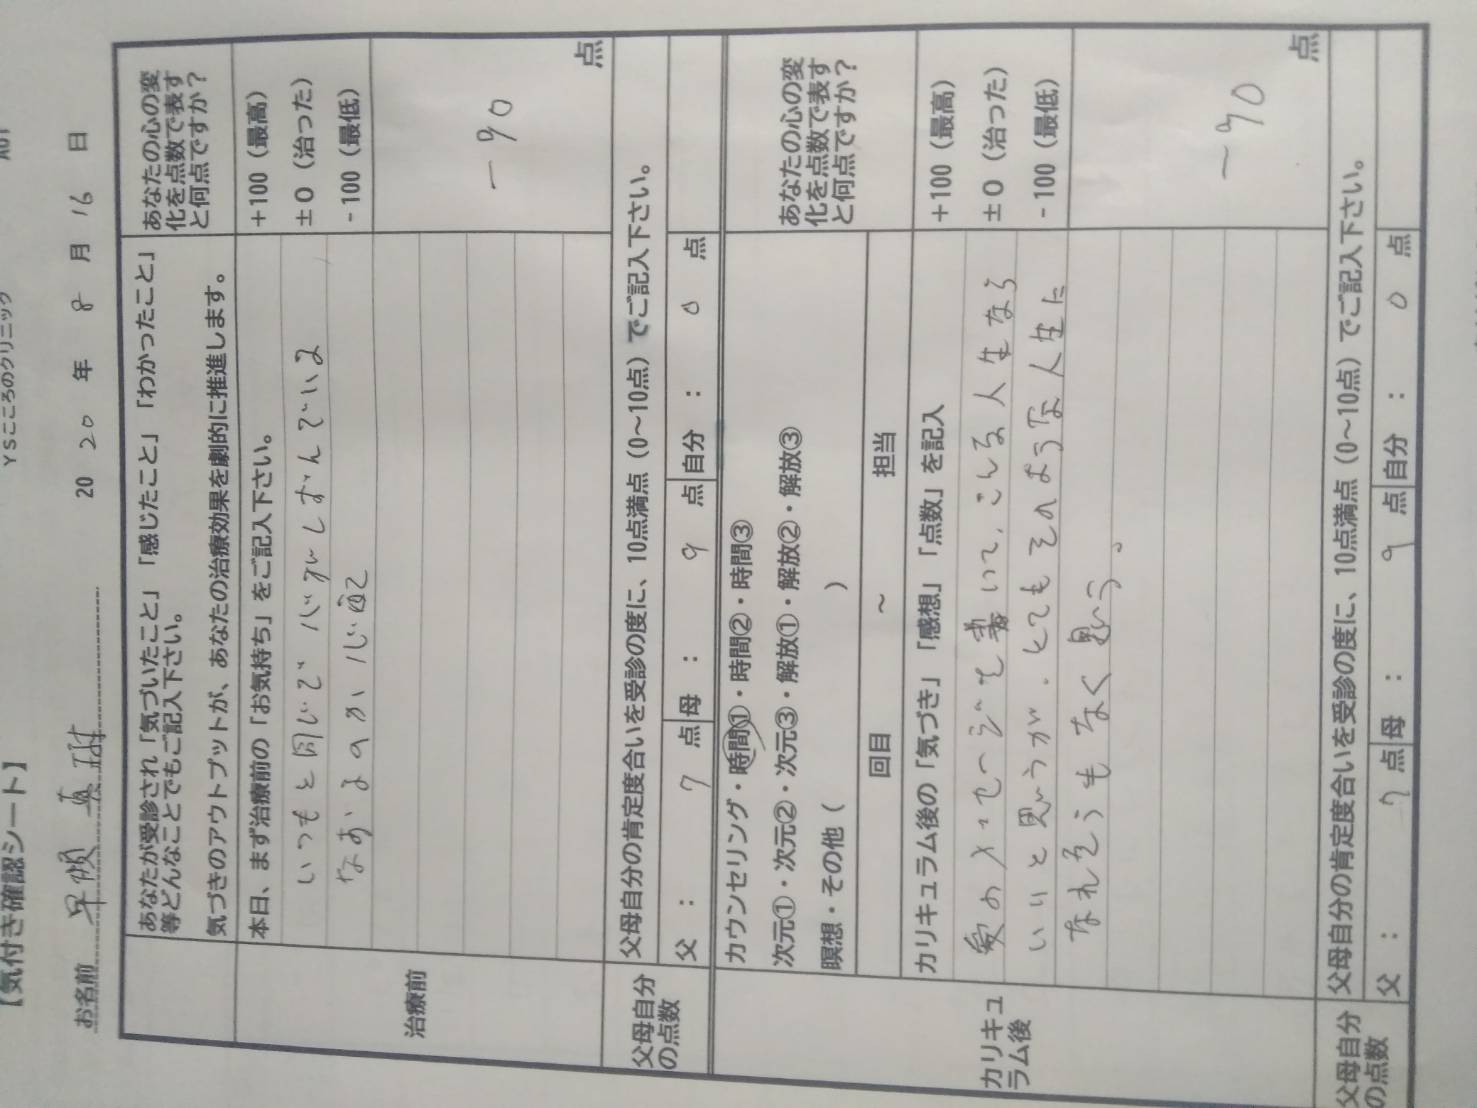 【気付き確認シート】
YSこころのクリニック
A01
お名前 早傾 真
2020年 8月 16日
あなたが受診され「気づいたこと」「感じたこと」「わかったこと」
等どんなことでもご記入下さい。
気づきのアウトプットが、あなたの治療効果を劇的に推進します。
あなたの心の変
化を点数で表す
と何点ですか？
治療前
本日、まず治療前の「お気持ち」をご記入下さい。
いつもと同じで 心がしずんでいる
なおるのか心配
+100（最高）
±0（治った）
-100（最低）
-90
点
父母自分
の点数
父母自分の肯定度合いを受診の度に、10点満点（0～10点）でご記入下さい。
父： 7 点
母： 9 点
自分： 0 点
カウンセリング・時間①・時間②・時間③
次元①・次元②・次元③・解放①・解放②・解放③
瞑想・その他（ ）
回目 ～ 担当
あなたの心の変
化を点数で表す
と何点ですか？
カリキュ
ラム後
カリキュラム後の「気づき」「感想」「点数」を記入
愛のメッセージを書いて、こんな人生なら
いいと思うが、とてもそのような人生に
なれそうもなく思う。
+100（最高）
±0（治った）
-100（最低）
-90
点
父母自分
の点数
父母自分の肯定度合いを受診の度に、10点満点（0～10点）でご記入下さい。
父： 7 点
母： 9 点
自分： 0 点